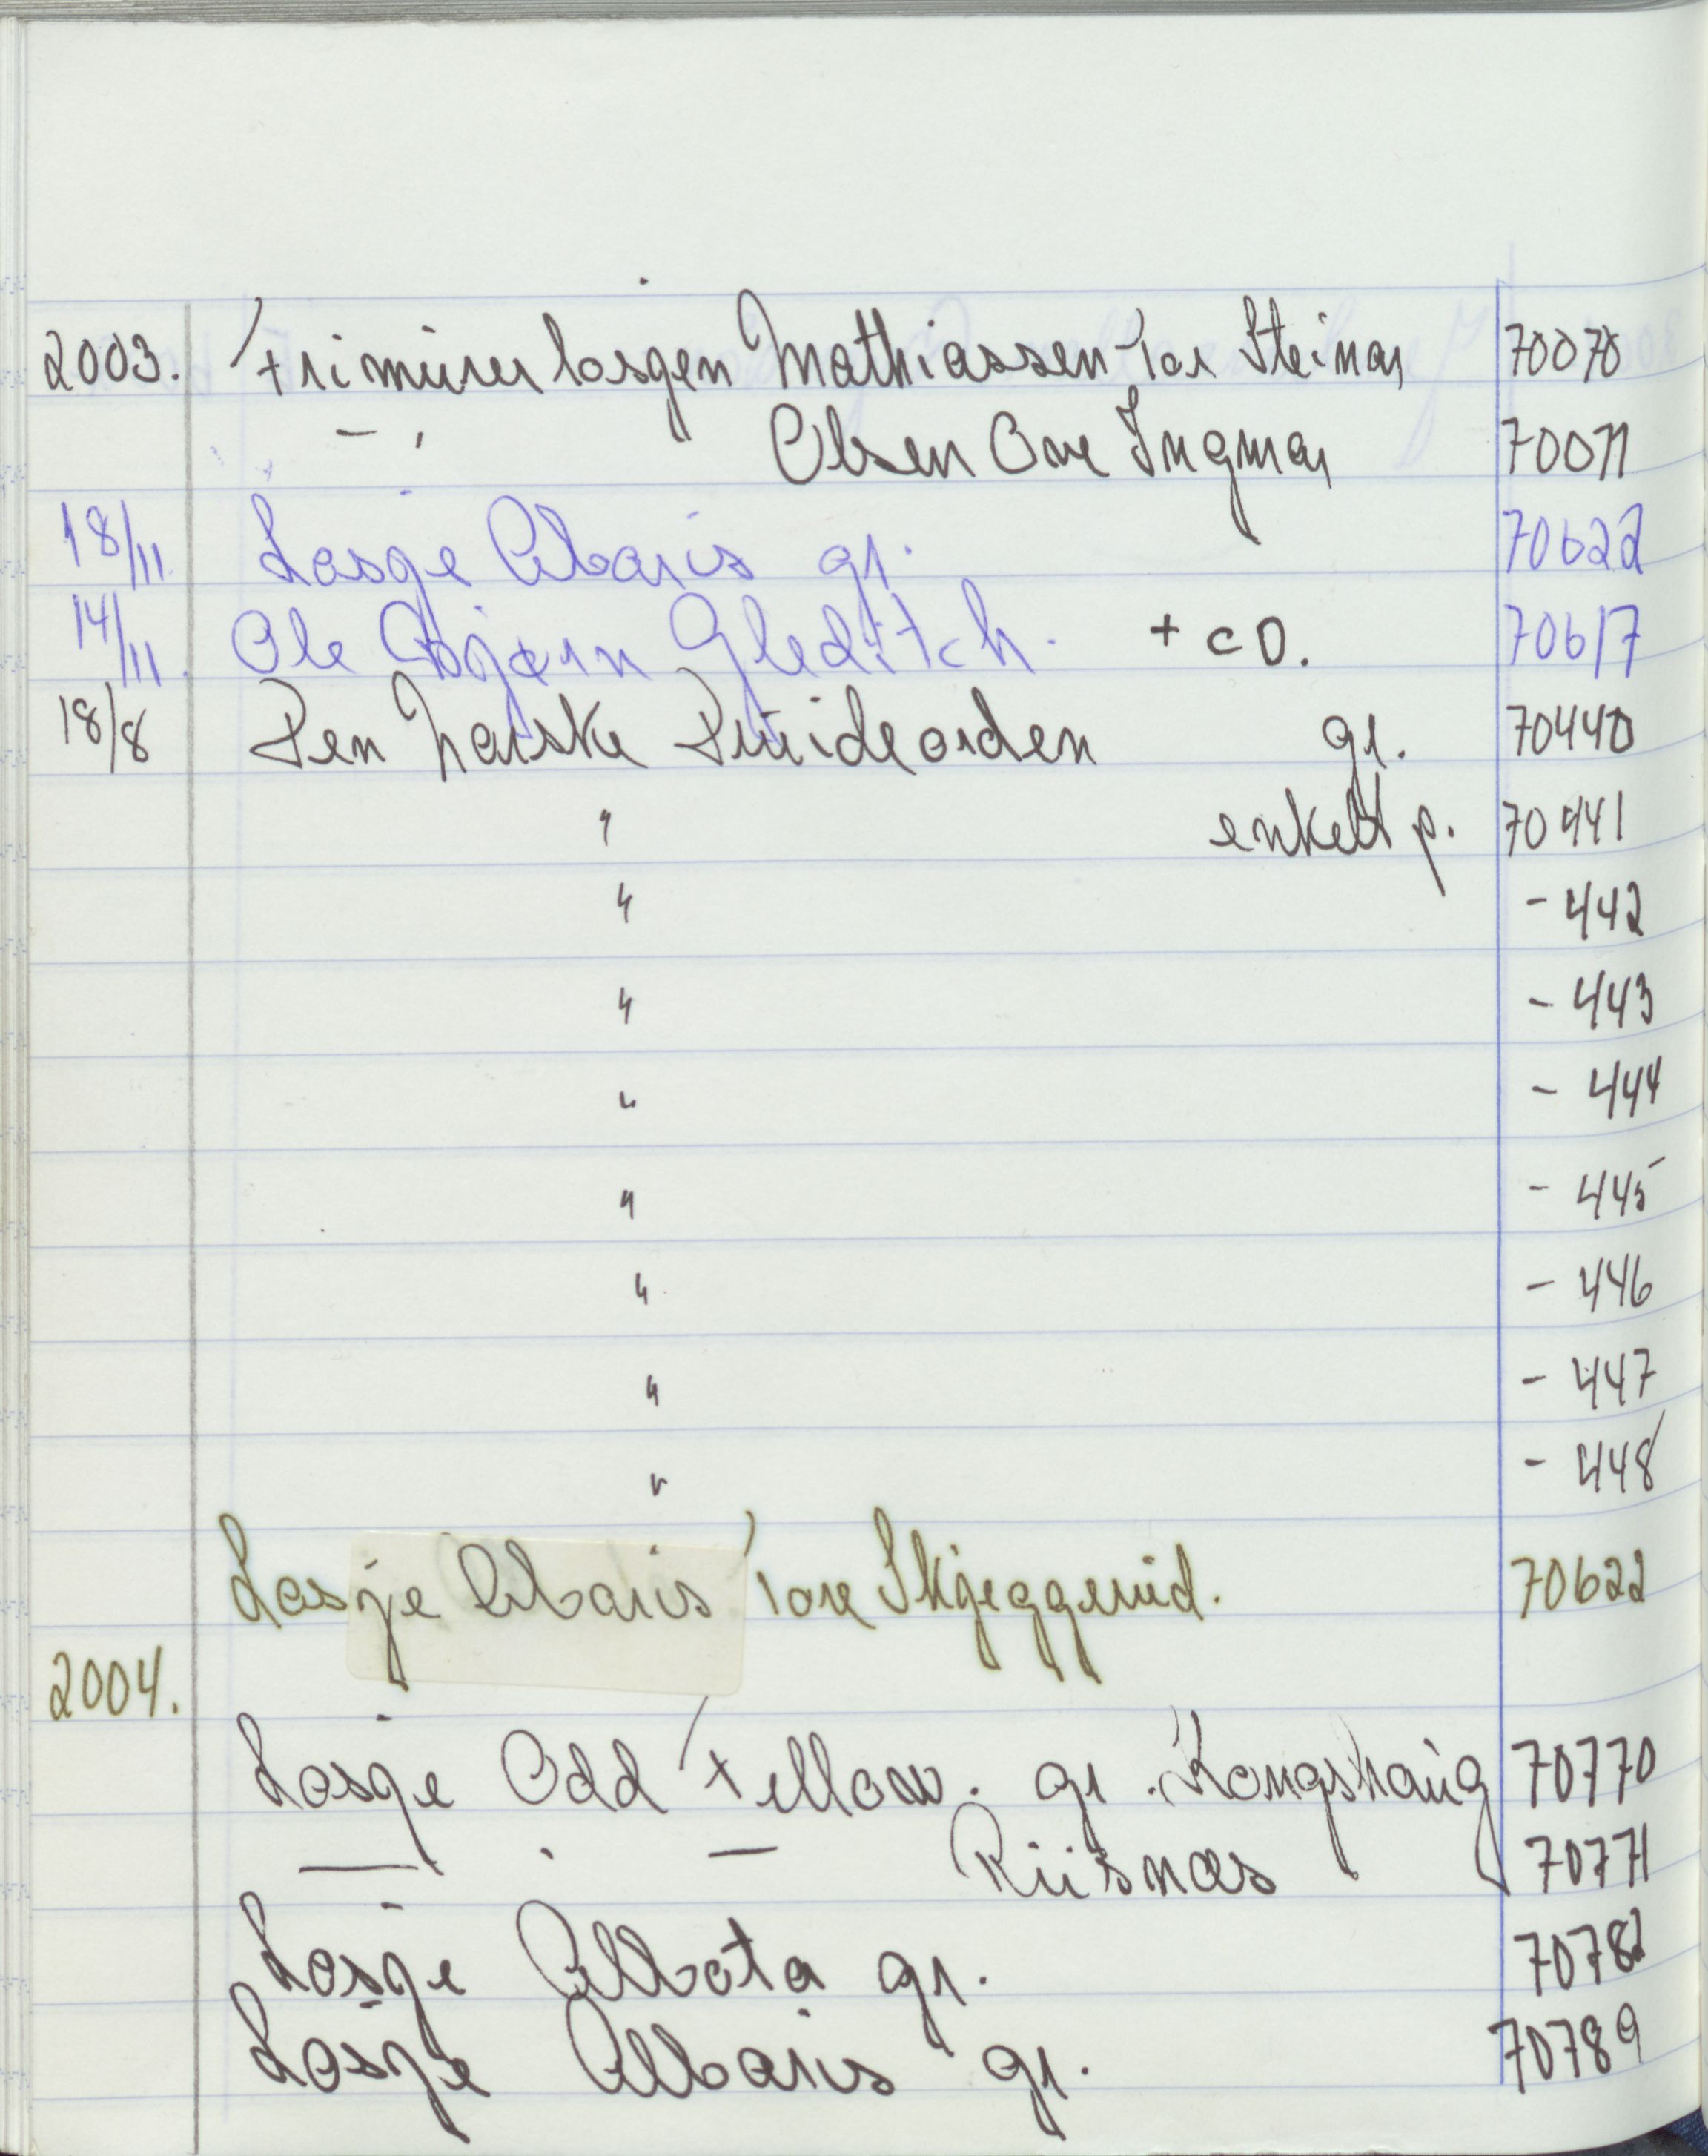 2003. Frimurerlosjen Mathiassen Tor Steinar 70070
— , Olsen Ove Ingmar 70071
18/11. Losje Abaris gr. 70622
14/11. Ole Bjørn Gleditch. + CD. 70617
18/8 Den Norske Druideorden gr. 70440
" enkelt p. 70441
" - 442
" - 443
" - 444
" - 445
" - 446
" - 447
" - 448
Losje Abaris Tore Skjeggerud. 70622
2004.
Losje Odd Fellow. gr. Kongshaug 70770
— " — Riisnæs 70771
Losje gr. 70782
Losje Albaris gr. 70789